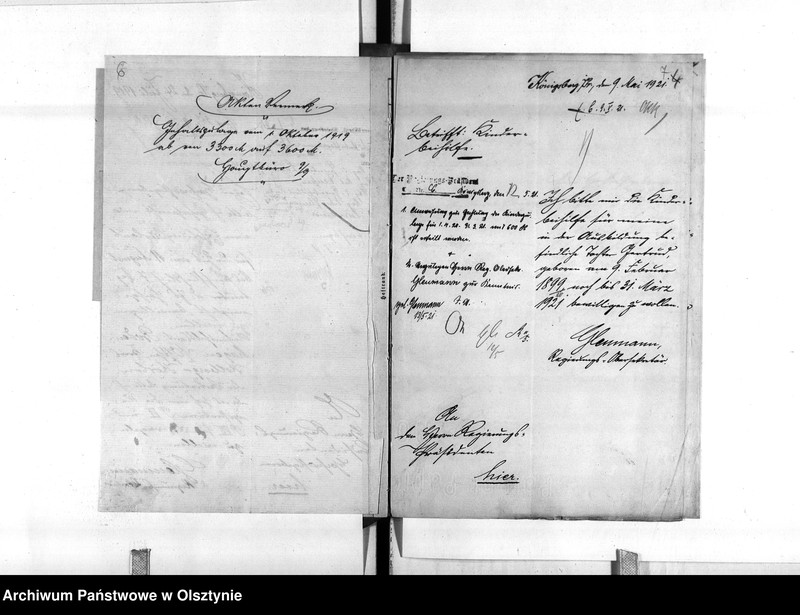 6
Akten Vermerk.
Gehaltszulage vom 1. Oktober 1919
ab von 3300 M auf 3600 M.
Hauptbüro
Heftrand
Königsberg Pr., den 9. Mai 1921.
Betrifft: Kinder-
beihilfe.
Der Regierungs-Präsident
Königsberg den 12. 5. 21.
1. Anweisung zur Zahlung der Kinderzu-
lage für 1. 4. 20. 31. 3. 21. mit 600 M
ist erteilt worden.
2. Herrn Reg. Obersekr.
Glenmann zur Kenntnis.
gel. Glenmann
13/5 21
Ich bitte mir die Kinder-
beihilfe für meine
in der Ausbildung be-
findliche Tochter Gertrud,
geboren am 9. Februar
1899, noch bis 31. März
1921 bewilligen zu wollen.
Glenmann,
Regierungs-Obersekretär.
An
den Herrn Regierungs-
Präsidenten
hier.
Archiwum Państwowe w Olsztynie